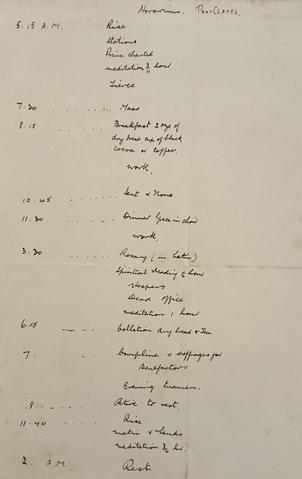 Horarium. Poor Clares.
5.15 A.M. Rise
Stations
Prime chanted
meditation ¾ hour
Tierce
7.30 Mass
8.15 Breakfast 2 ozs of
dry bread cup of black
cocoa or coffee.
work.
10.45 Sext & None
11.30 Dinner Grace in choir
work.
3.30 Rosary (in Latin)
Spiritual reading ½ hour
Vespers
Dead office
meditation 1 hour
6.15 Collation dry bread & Tea
7. Compline & suffrages for
Benefactors
Evening Examen.
8 Retire to rest.
11.40 Rise
matins & Lauds
meditation ¾ hr.
2. A.M. Rest.